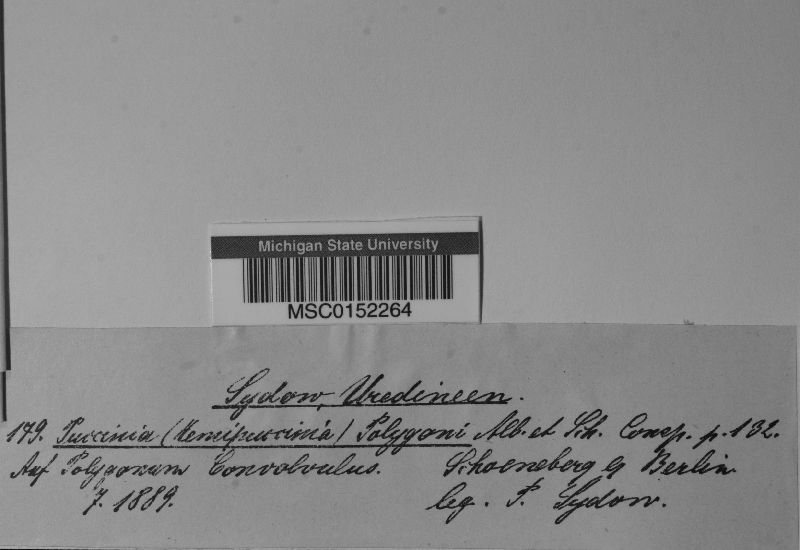 Michigan State University
MSC0152264
Sydow, Uredineen.
179. Puccinia (Hemipuccinia) Polygoni Alb. et Sch. Consp. p. 132.
Auf Polygonum Convolvulus. Schoeneberg b/ Berlin.
7. 1889. leg. P. Sydow.